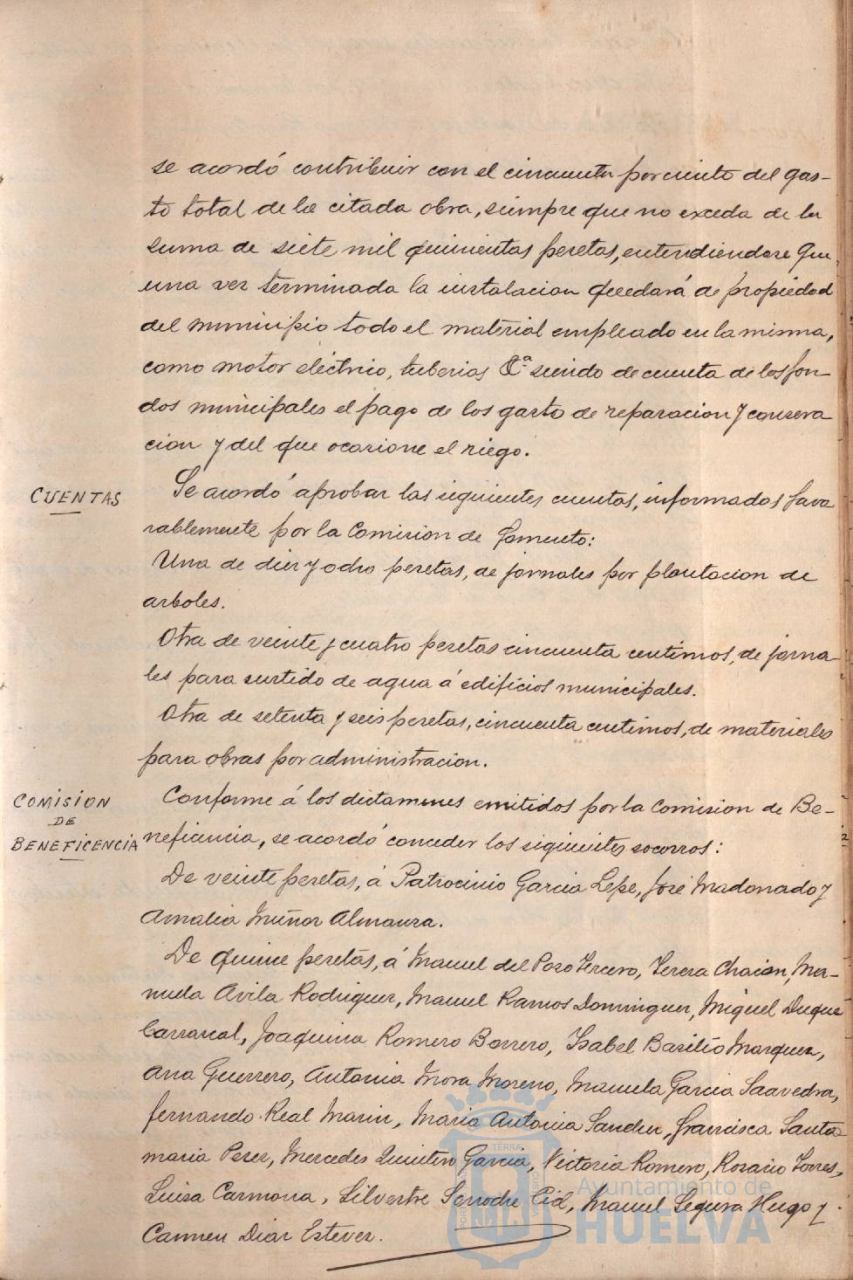 se acordó contribuir con el cincuenta por ciento del gas-
to total de la citada obra, siempre que no exceda de la
suma de siete mil quinientas pesetas, entendiendose que
una vez terminada la instalacion quedará de propiedad
del municipio todo el material empleado en la misma,
como motor eléctrico, tuberias &ª siendo de cuenta de los fon-
dos municipales el pago de los gasto de reparacion y conserva
cion y del que ocasione el riego.
CUENTAS
Se acordó aprobar las siguientes cuentas, informadas favo
rablemente por la Comision de Fomento:
Una de diez y ocho pesetas, de jornales por plantacion de
arboles.
Otra de veinte y cuatro pesetas cincuenta centimos, de jorna-
les para surtido de agua á edificios municipales.
Otra de setenta y seis pesetas, cincuenta centimos, de materiales
para obras por administracion.
COMISION
DE
BENEFICENCIA
Conforme á los dictamenes emitidos por la Comision de Be-
neficencia, se acordó conceder los siguientes socorros:
De veinte pesetas, á Patrocinio Garcia Lepe, José Maldonado y
Amalia Muñoz Almansa.
De quince pesetas, á Manuel del Pozo Tercero, Teresa Chacon, Ma-
nuela Avila Rodriguez, Manuel Ramos Dominguez, Miguel Duque
Carrascal, Joaquina Romero Borrero, Isabel Basilio Marquez,
Ana Guerrero, Antonia Mora Moreno, Manuela Garcia Saavedra,
Fernando Real Marin, Maria Antonia Sanchez, Francisca Santa
maria Perez, Mercedes Quintin Garcia, Victoria Romero, Rosario Torres,
Luisa Carmona, Silvestre Cid, Manuel Segura Hugo y
Carmen Diaz Estevez.
Ayuntamiento de
HUELVA